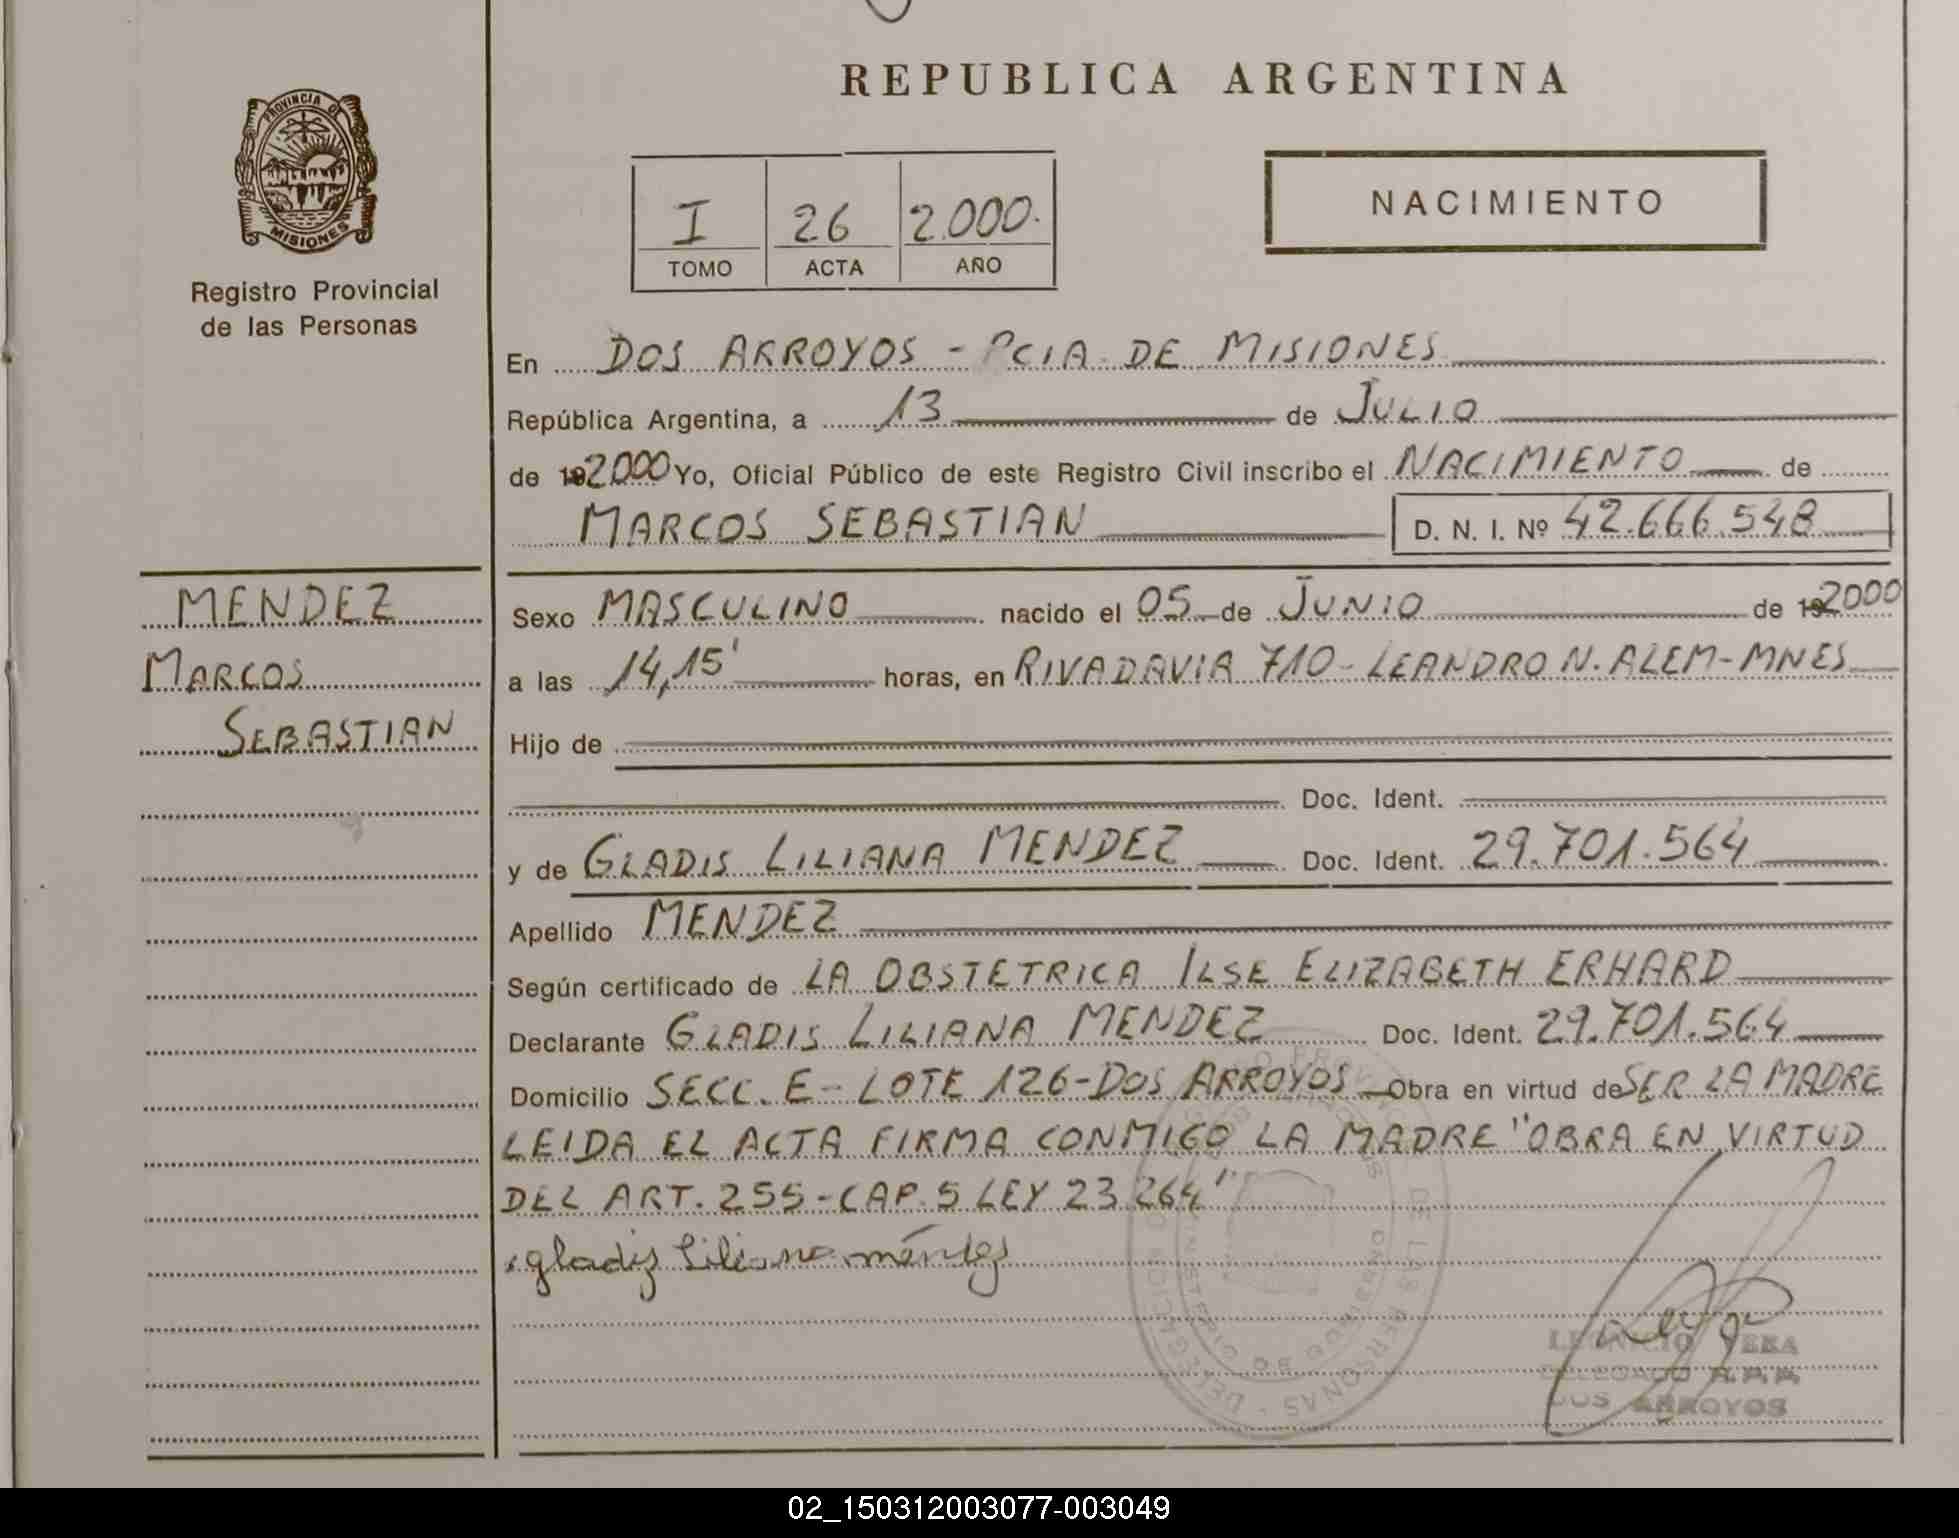 REPUBLICA ARGENTINA
PROVINCIA DE
MISIONES
Registro Provincial
de las Personas
I 26 2.000.
TOMO ACTA AÑO
NACIMIENTO
En DOS ARROYOS - PCIA DE MISIONES
República Argentina, a 13 de JULIO
de 192000 Yo, Oficial Público de este Registro Civil inscribo el NACIMIENTO de
MARCOS SEBASTIAN D. N. I. Nº 42.666.548
MENDEZ
MARCOS
SEBASTIAN
Sexo MASCULINO nacido el 05 de JUNIO de 192000
a las 14,15' horas, en RIVADAVIA 710 - LEANDRO N. ALEM - MNES
Hijo de
Doc. Ident.
y de GLADIS LILIANA MENDEZ Doc. Ident. 29.701.564
Apellido MENDEZ
Según certificado de LA OBSTETRICA ILSE ELIZABETH ERHARD
Declarante GLADIS LILIANA MENDEZ Doc. Ident. 29.701.564
Domicilio SECC. E - LOTE 126 - DOS ARROYOS Obra en virtud de SER LA MADRE
LEIDA EL ACTA FIRMA CONMIGO LA MADRE "OBRA EN VIRTUD
DEL ART. 255 - CAP. 5 LEY 23.264"
gladiz liliana méndez
DE LAS PERSONAS
MINISTERIO DE GOBIERNO
LEONICIO VERA
DELEGADO R.P.P.
DOS ARROYOS
02_150312003077-003049